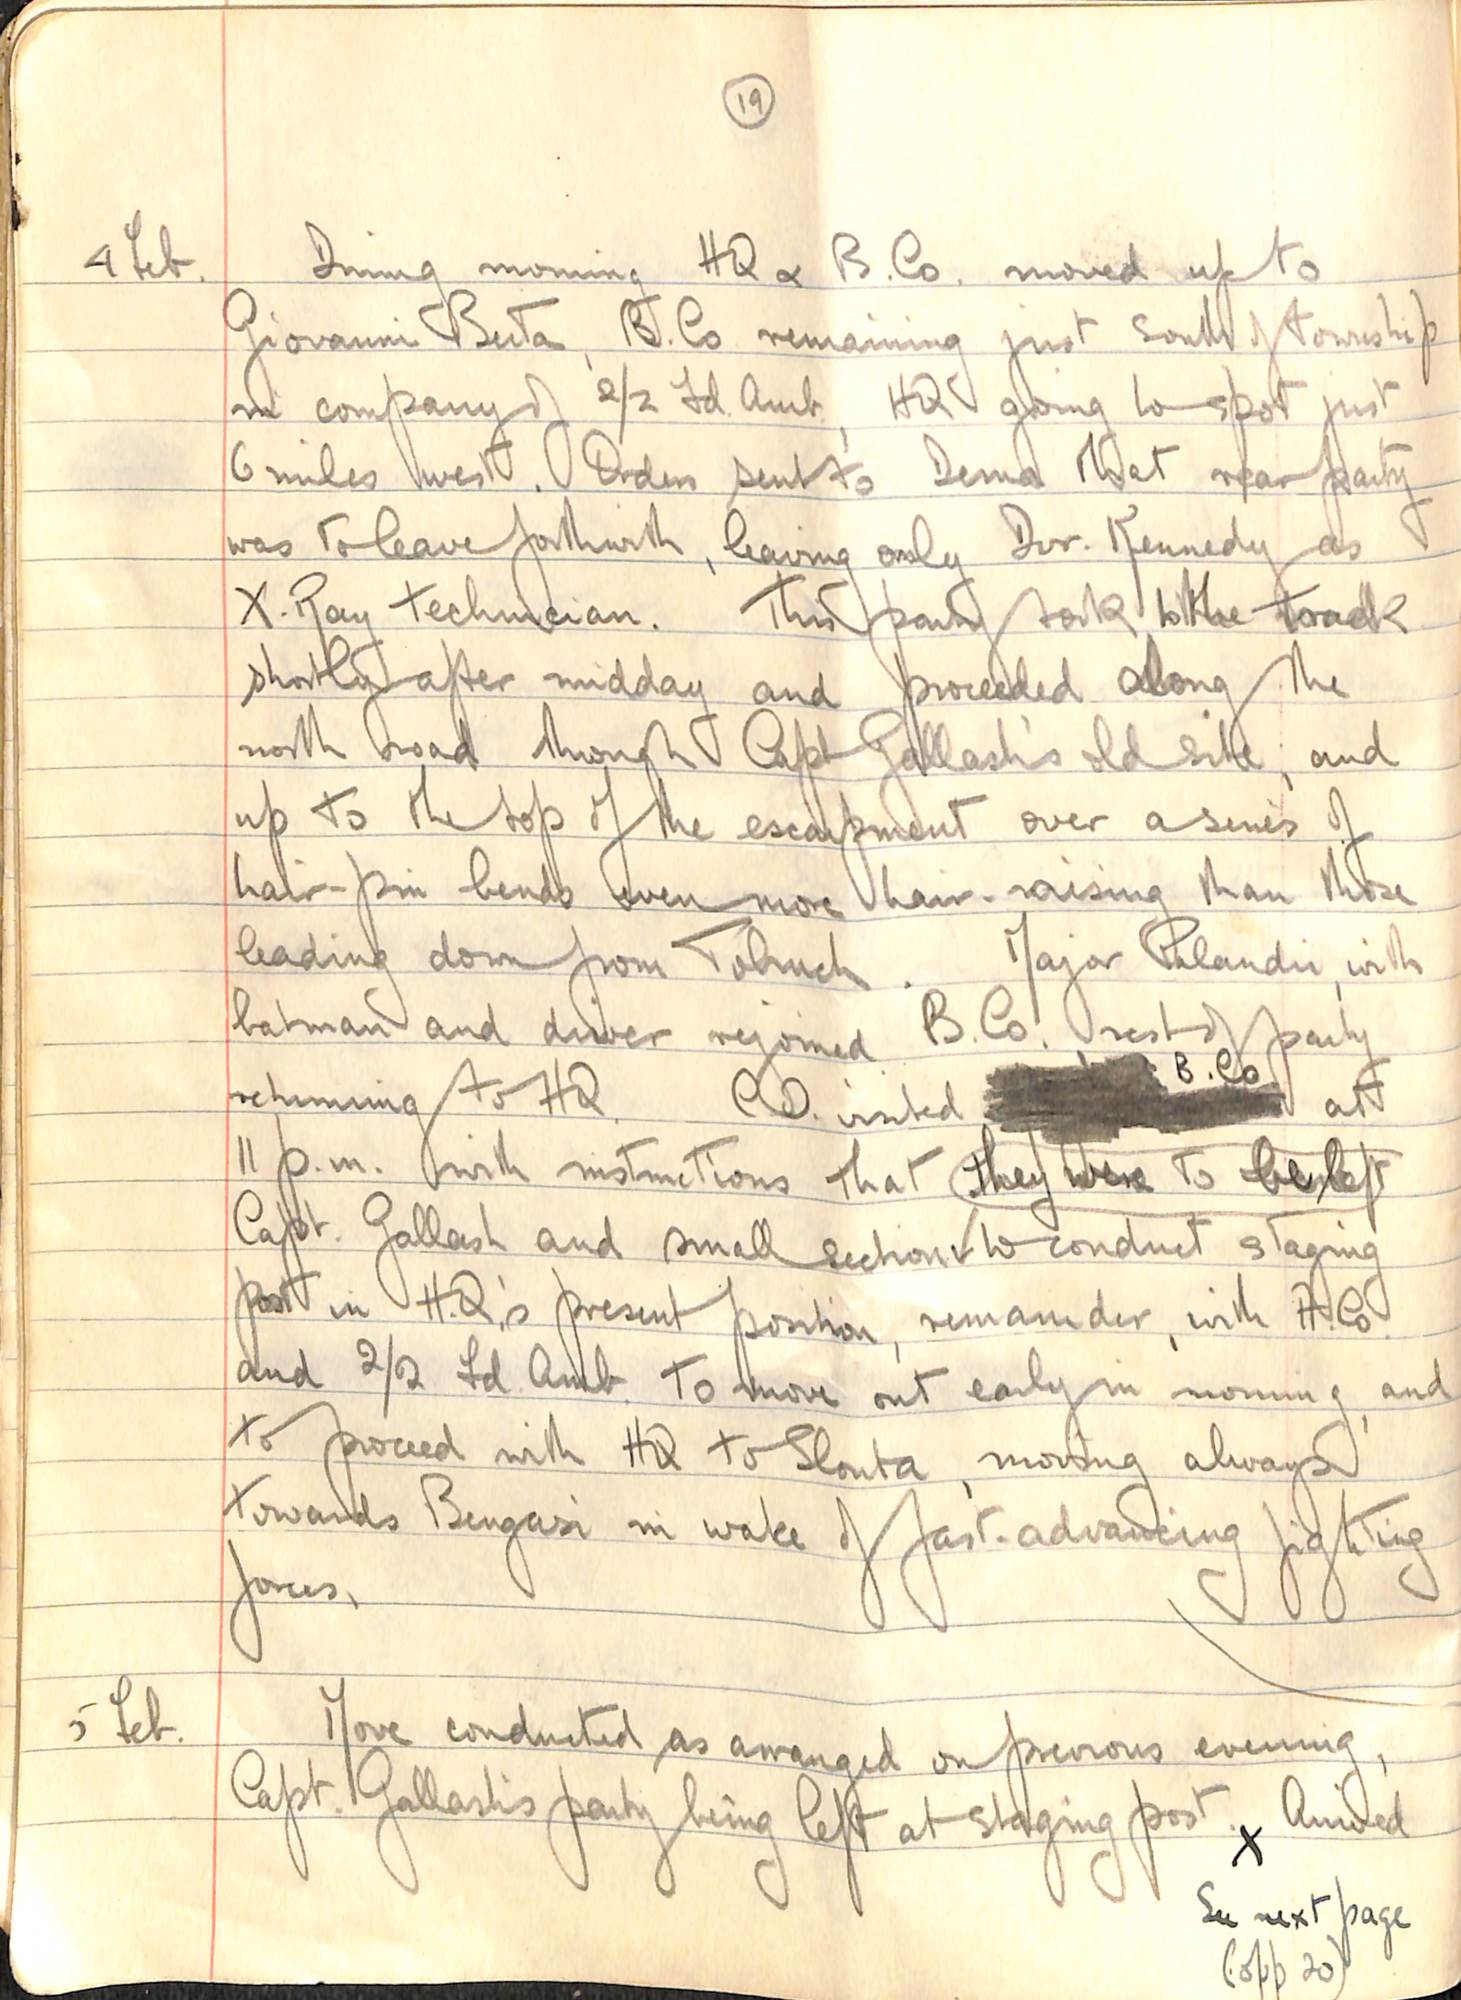 19
4 Feb. During morning HQ & B.Co. moved up to
Giovanni Berta, B.Co remaining just south of township
in company of 2/2 Fd. Amb., HQ going to spot just
6 miles west. Orders sent to Derna that rear party
was to leave forthwith, leaving only Dvr. Kennedy as
X-Ray technician. This party took to the road
shortly after midday and proceeded along the
north road through Capt Gallash's old site, and
up to the top of the escarpment over a series of
hair-pin bends even more hair-raising than those
leading down from Tobruch. Major Palandri, with
batman and driver rejoined B.Co. rest of party
returning to HQ. C.O. visited B.Co at
11 p.m. with instructions that they were to be left
Capt. Gallash and small section to conduct staging
post in H.Q.'s present position, remainder, with A.Co.
and 2/2 Fd. Amb. to move out early in morning, and
to proceed with HQ to Slonta, moving always
towards Bengasi in wake of fast-advancing fighting
forces.
5 Feb. Move conducted as arranged on previous evening,
Capt. Gallash's party being left at staging post. Arrived
X
See next page
(opp 20)